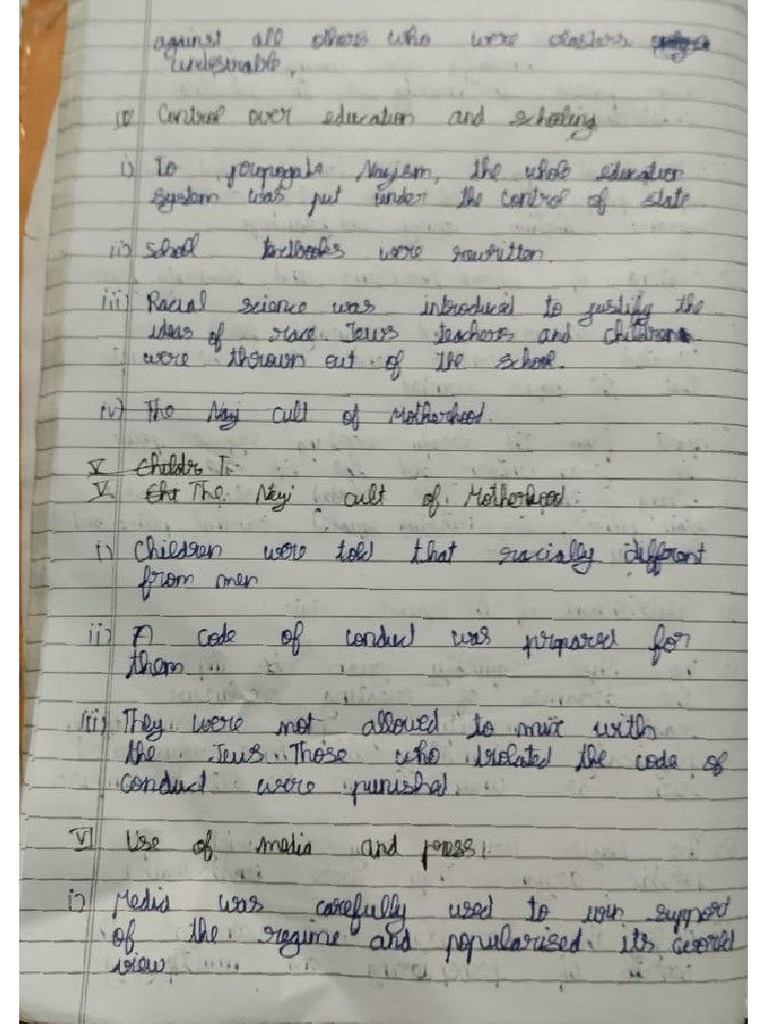 against all others who were
undesirable.
IV Control over education and schooling
i) To propogate Nazism, the whole education
system was put under the control of state
ii) School textbooks were rewritten.
iii) Racial science was introduced to justify the
ideas of race. Jews teachers and children
were thrown out of the school.
iv) The Nazi cult of Motherhood.
V Childr T
V. The Nazi cult of Motherhood.
i) Children were told that racially different
from men
ii) A code of conduct was prepared for
them
iii) They were not allowed to mix with
the Jews. Those who violated the code of
conduct were punished.
VI Use of media and press.
i) Media was carefully used to win support
of the regime and popularised its world
view